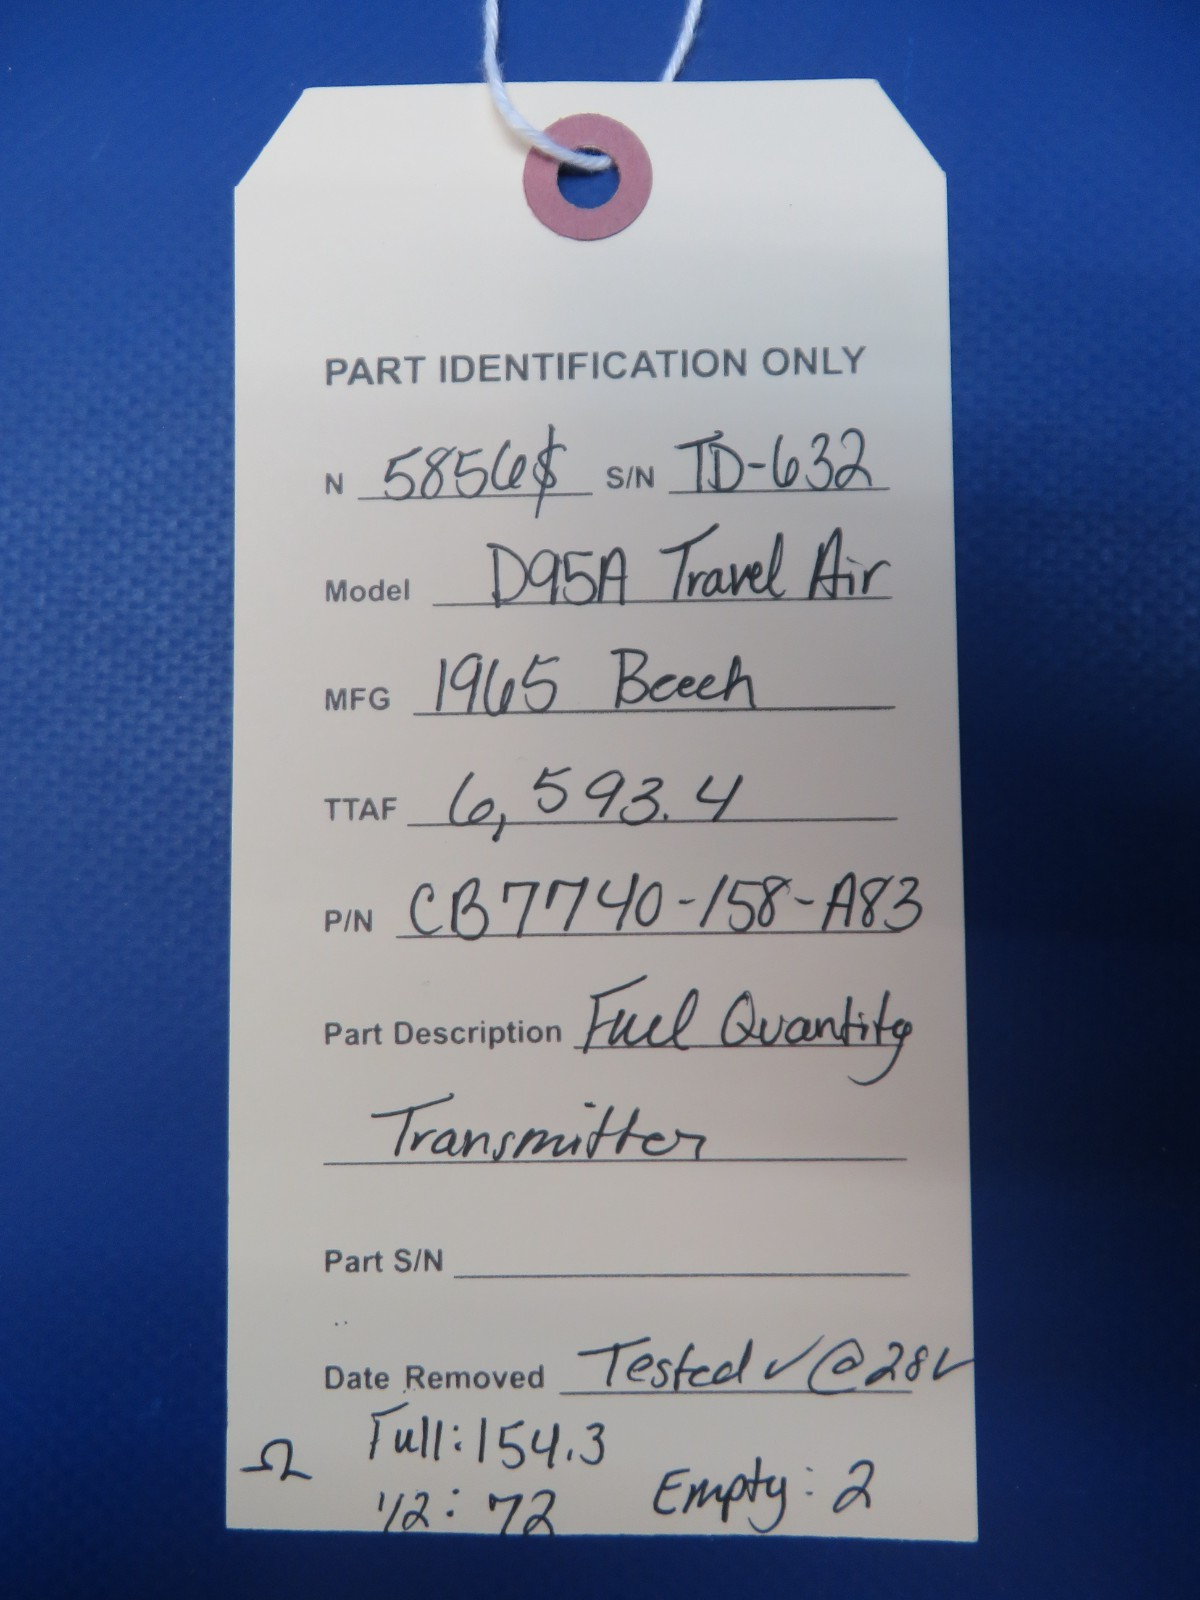 PART IDENTIFICATION ONLY
N 5856$ S/N TD-632
Model D95A Travel Air
MFG 1965 Beech
TTAF 6,593.4
P/N CB7740-158-A83
Part Description Fuel Quantity
Transmitter
Part S/N
Date Removed Tested ✓ @ 28V
Ω Full: 154.3
1/2: 72 Empty: 2